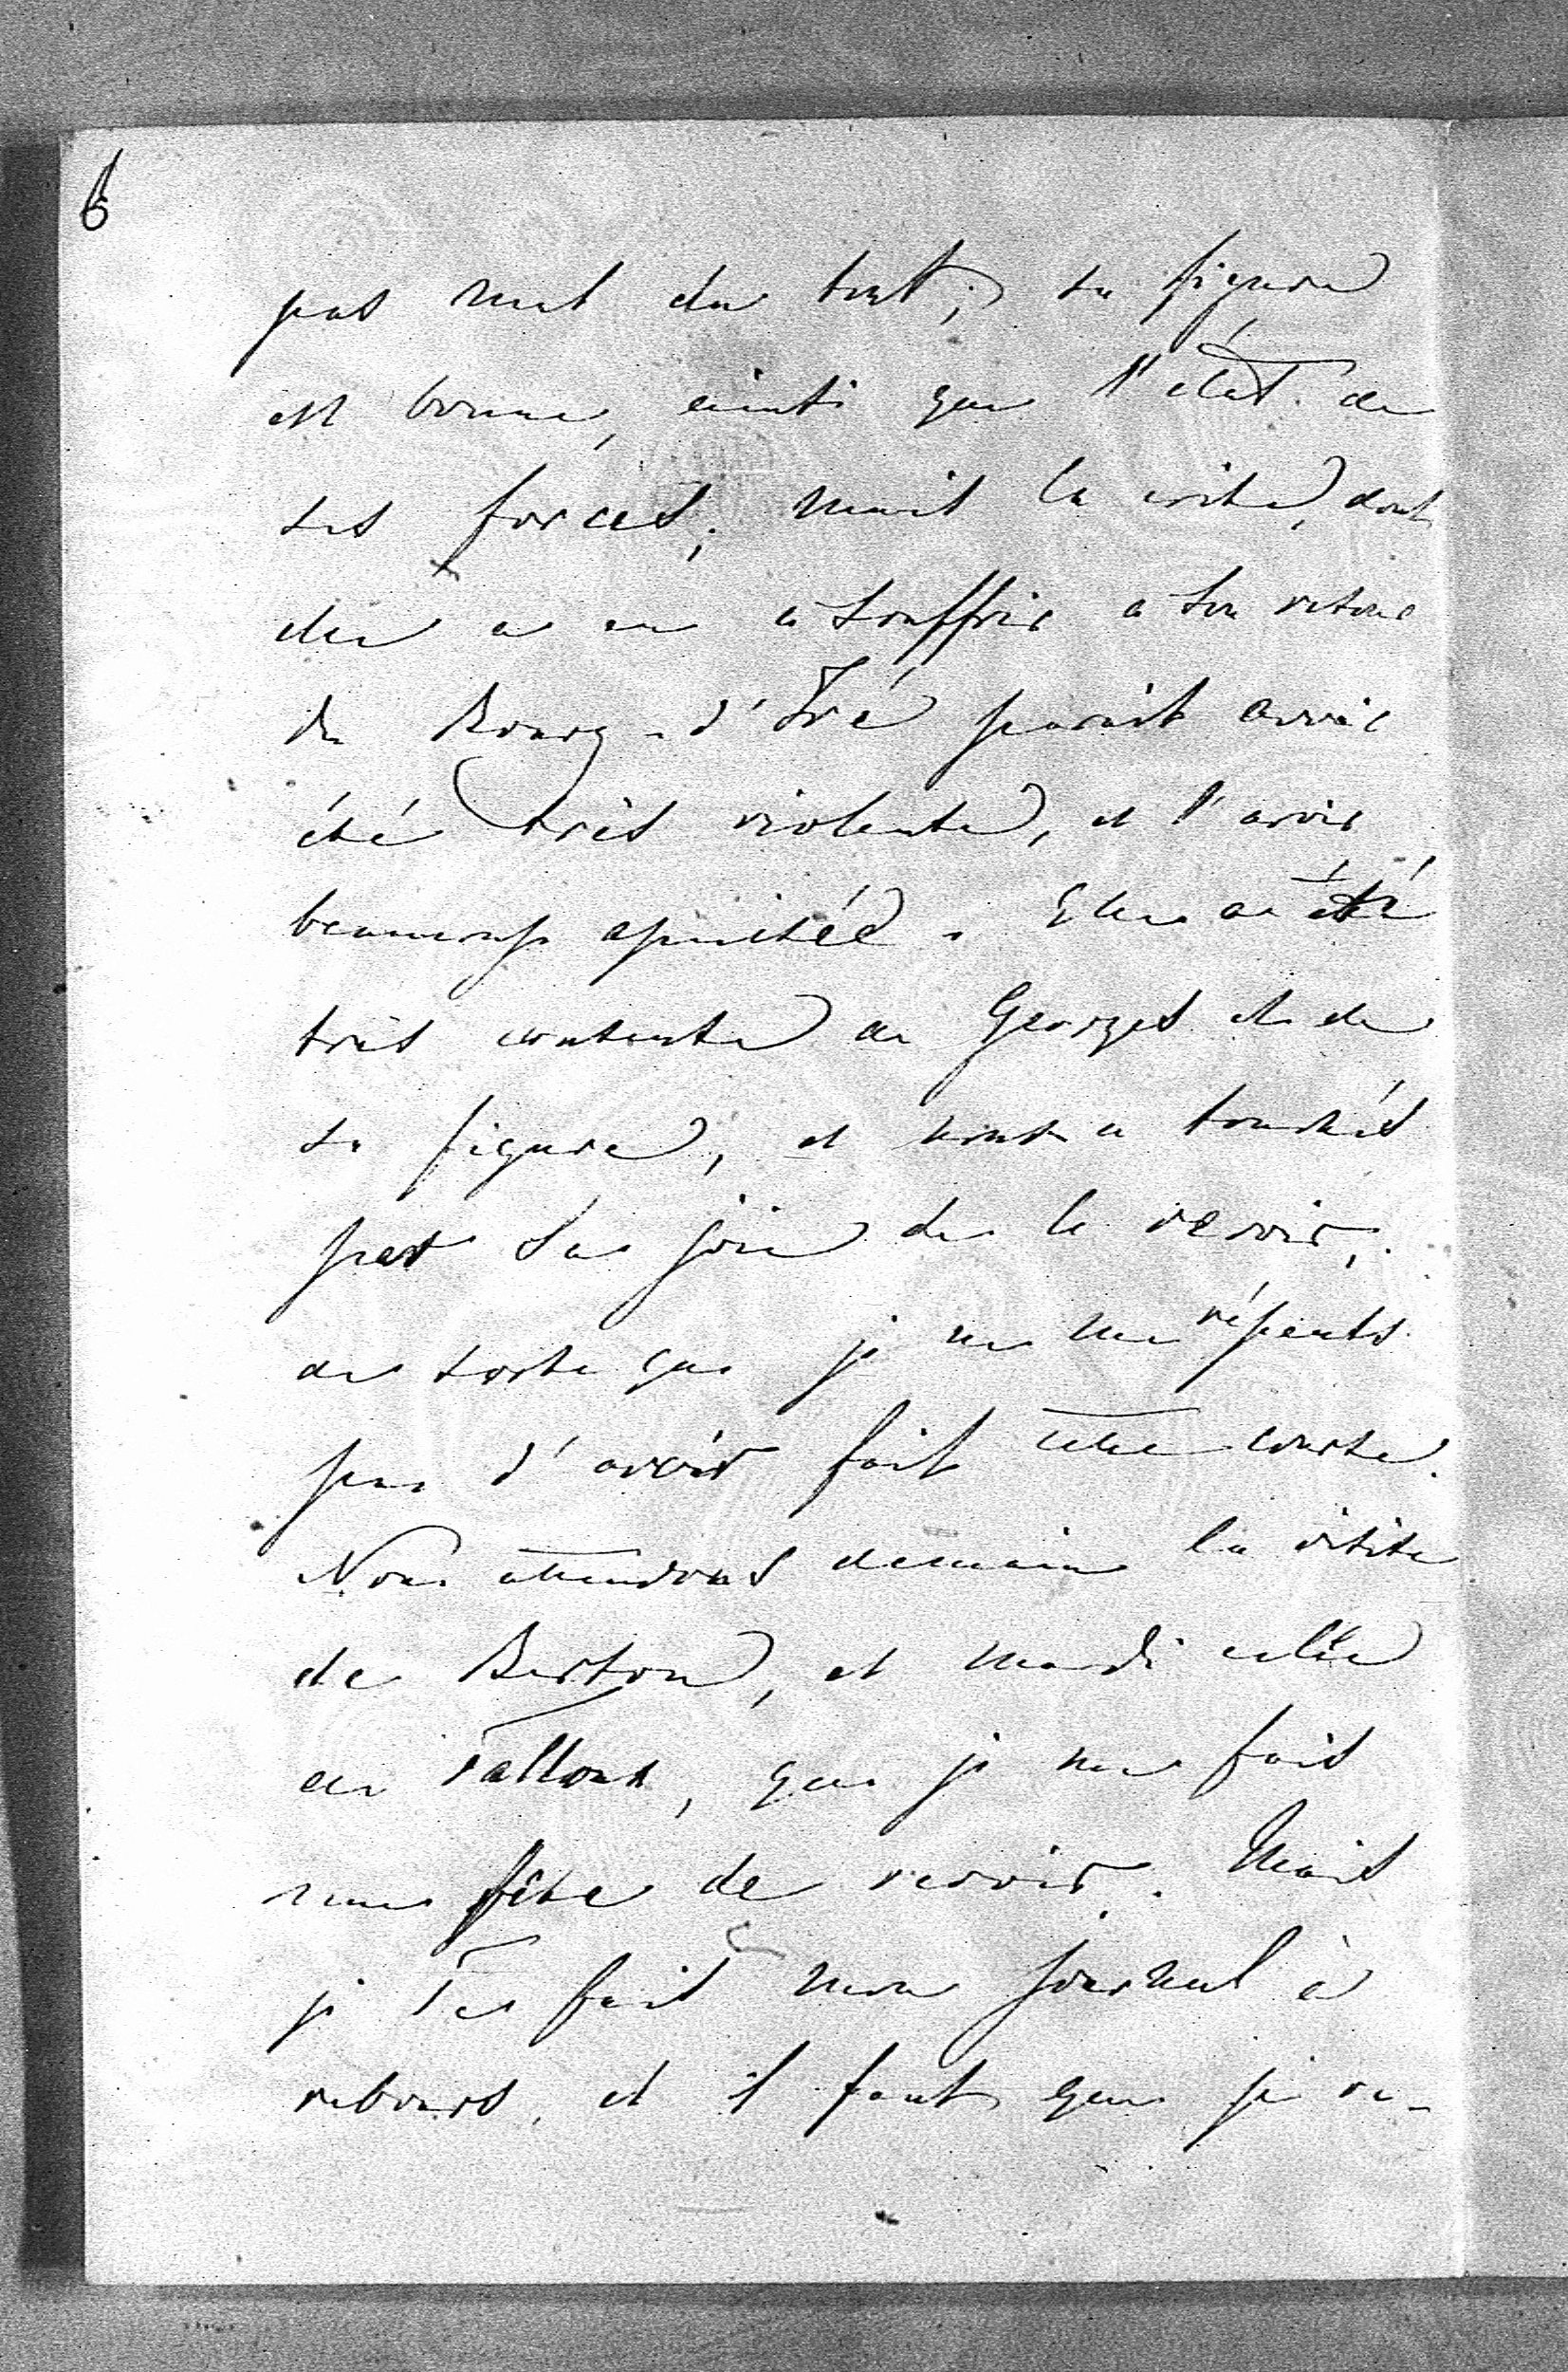 6
pas mal du tout; sa figure
est bonne, ainsi que l'état de
ses forces; mais la crise, dont
elle a eu à souffrir à son retour
du Bourg-d'Iré paraît avoir
été très violente, et l'avoir
beaucoup épuisée. Elle a été
très contente de Georges et de
sa figure, et nous a touchés
par sa joie de le revoir,
de sorte que je ne me répents
pas d'avoir fait cette course.
Nous attendons demain la visite
de Bertou, et mardi celle
de Falloux, que je me fais
une fête de revoir. Mais
je te fais mon journal à
rebours, et il faut que je re-